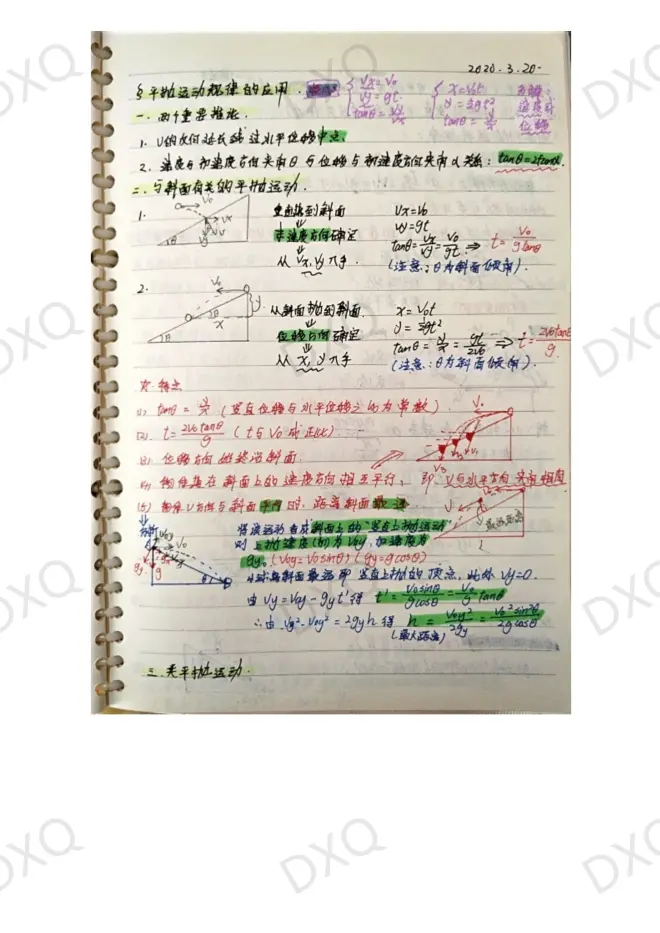 2020.3.20.
§ 平抛运动规律的应用.
{ Vx=V0 Vy=gt. tanθ=Vy/Vx
{ x=V0t y=½gt² tanα=y/x
分解: 速度或 位移
一. 两个重要推论.
1. V的反向延长线过水平位移中点.
2. 速度与初速度方向夹角θ与位移与初速度方向夹角α关系: tanθ=2tanα.
二. 与斜面有关的平抛运动.
1.
垂直落到斜面
⇓
速度方向确定
⇓
从Vx, Vy入手
Vx=V0
Vy=gt
tanθ=Vx/Vy=V0/gt ⇒ t=V0/gtanθ
(注意: θ为斜面倾角).
2.
从斜面抛的斜面.
⇓
位移方向确定
⇓
从x, y入手
x=V0t
y=½gt²
tanθ=y/x=gt/2V0 ⇒ t=2V0tanθ/g.
(注意: θ为斜面倾角).
特点
(1) tanθ=y/x (竖直位移与水平位移之比为常数).
(2). t=2V0tanθ/g (t与V0成正比).
(3) 位移方向始终沿斜面.
(4) 物体落在斜面上的速度方向相互平行, 即: V与水平方向夹角相同.
(5) 物体V方向与斜面平行时, 距离斜面最远.
最远距离
分析
将该运动看成斜面上的“竖直上抛运动”
则上抛速度(初)为V0y, 加速度为
gy. (V0y=V0sinθ) (gy=gcosθ)
小球离斜面最远即竖直上抛的顶点, 此处Vy=0.
由 Vy=V0y-gyt' 得 t'=V0sinθ/gcosθ=V0/g tanθ
∴由 Vy²-V0y²=2gyh 得 h=V0y²/2gy=V0²sin²θ/2gcosθ
(最大距离)
三. 类平抛运动.
DXQ